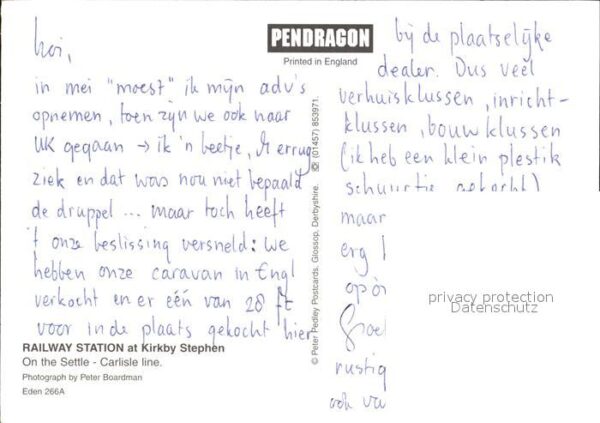 hoi,
in mei "moest" ik mijn adv's
opnemen, toen zijn we ook naar
UK gegaan → ik 'n beetje, M erug
ziek en dat was nou niet bepaald
de druppel ... maar toch heeft
't onze beslissing versneld: we
hebben onze caravan in Engl
verkocht en er één van 28 ft
voor in de plaats gekocht hier
RAILWAY STATION at Kirkby Stephen
On the Settle - Carlisle line.
Photograph by Peter Boardman
Eden 266A
PENDRAGON
Printed in England
© Peter Pedley Postcards, Glossop, Derbyshire. (01457) 853971.
bij de plaatselijke
dealer. Dus veel
verhuisklussen, inricht-
klussen, bouwklussen
(ik heb een klein plestik
schuurtje gekocht)
maar
erg
rustig
ook va
privacy protection
Datenschutz